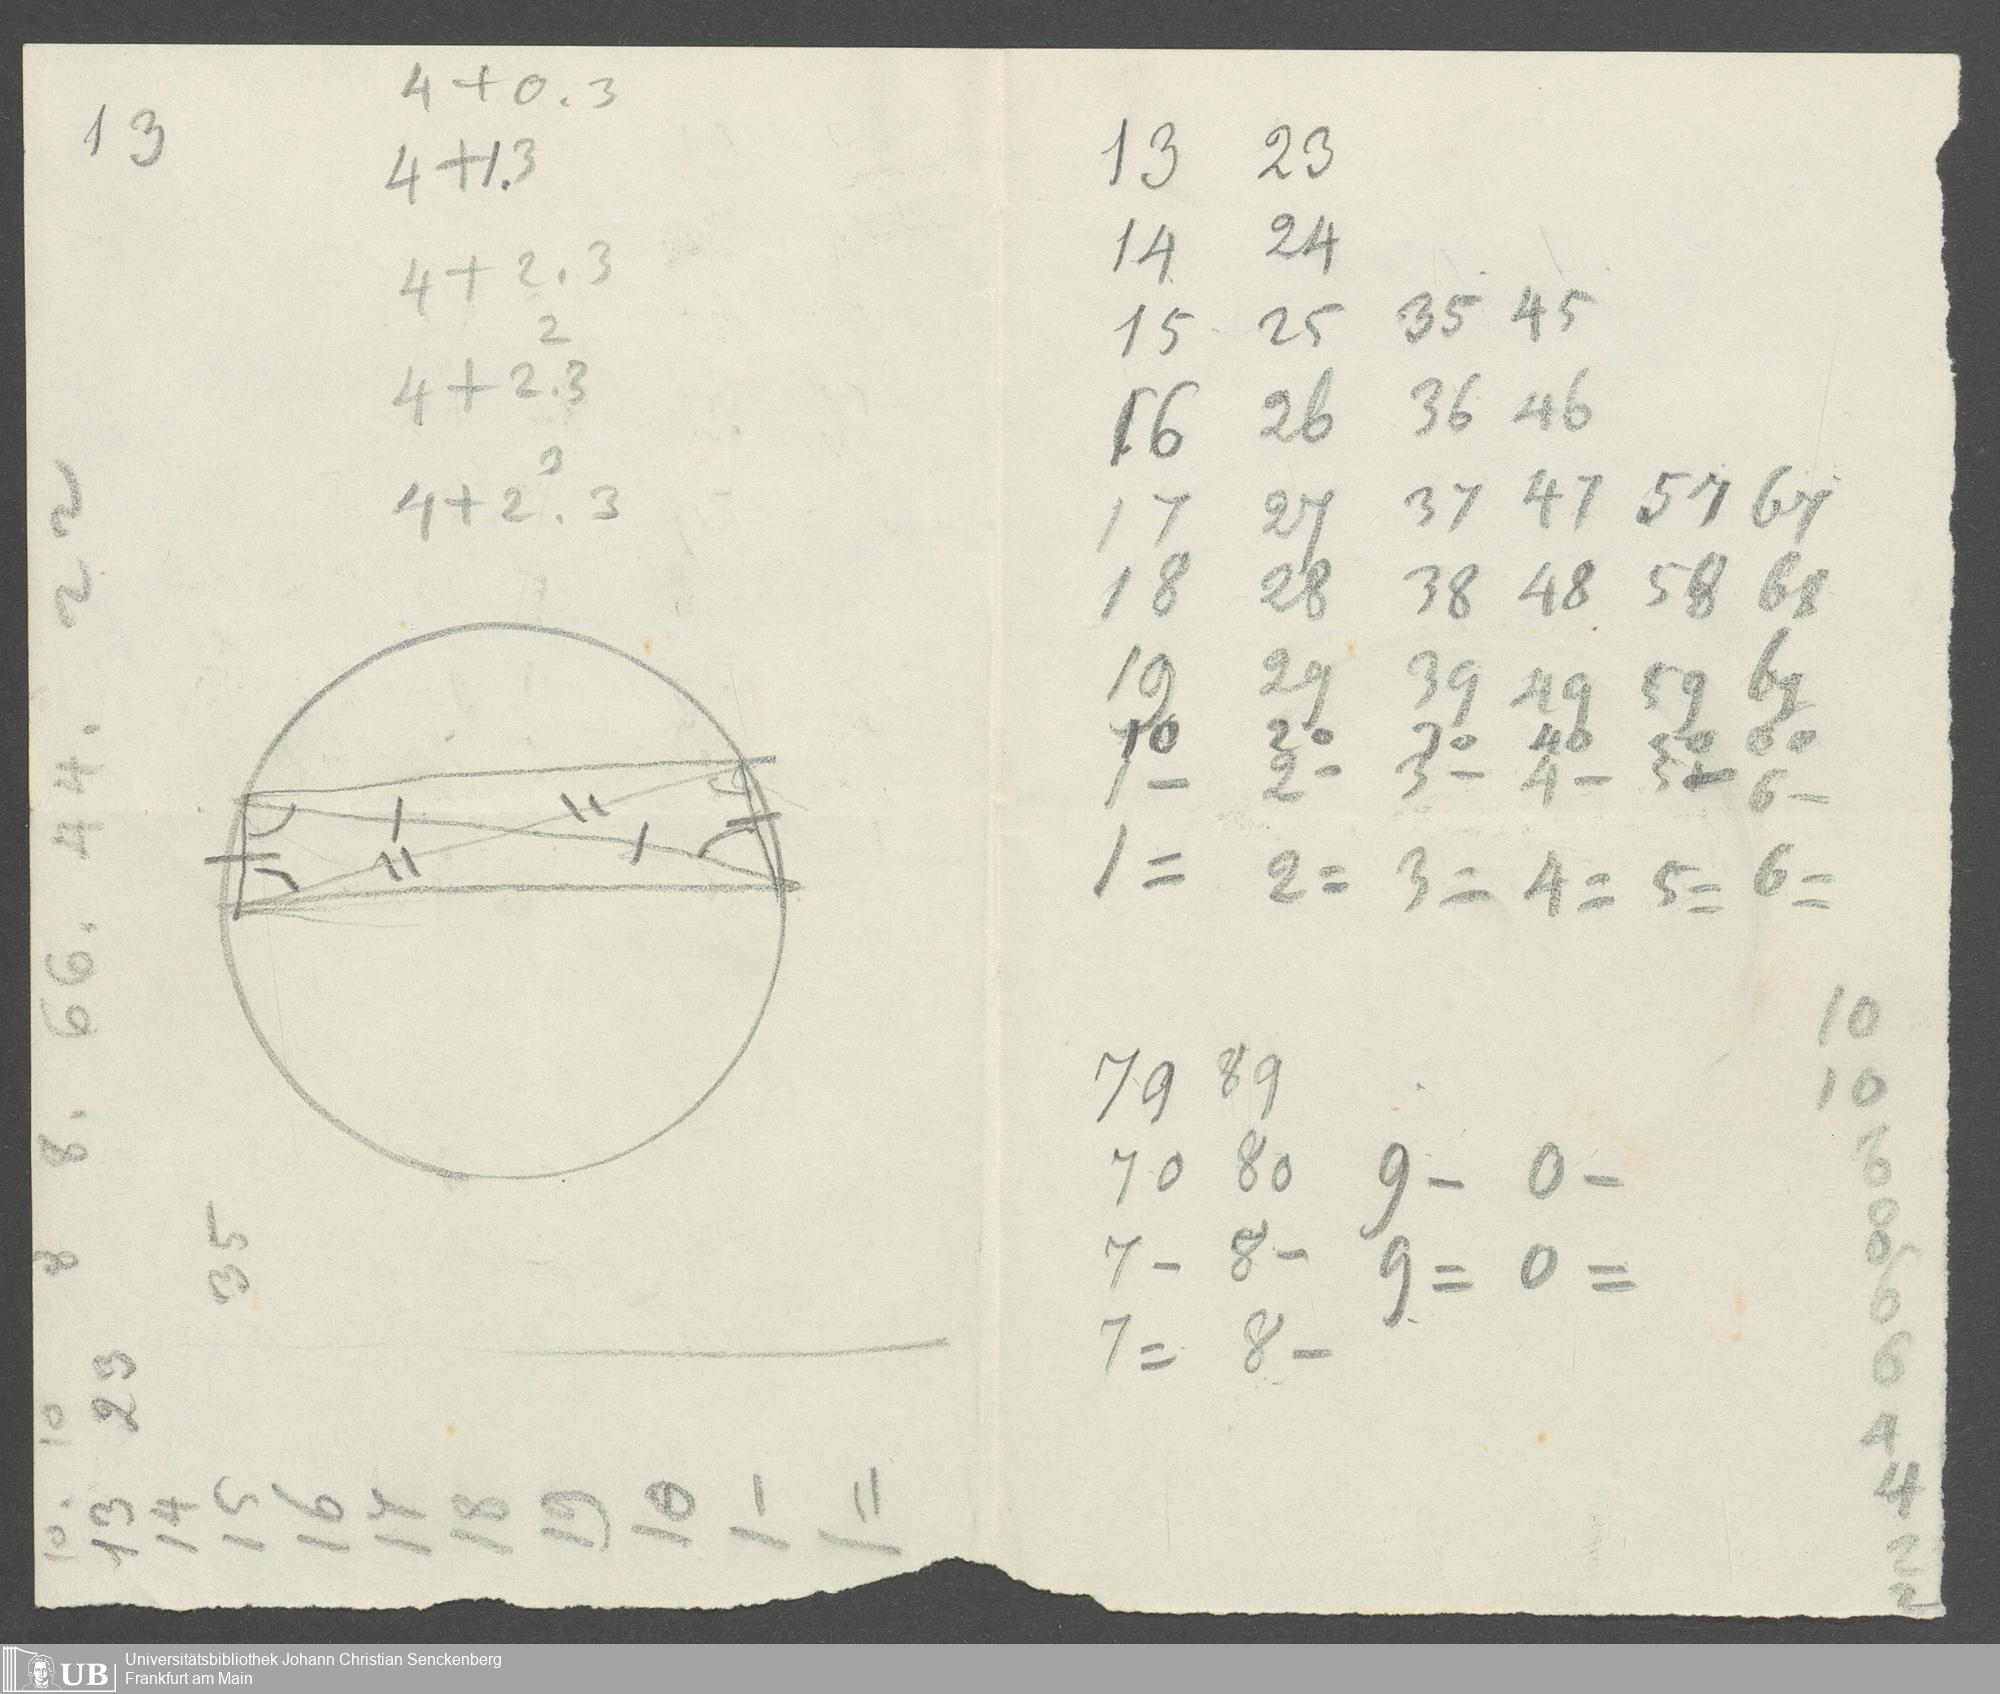 4 + 0 . 3
13
4 + 1.3
4 + 2 . 3
4 + 2².3
4 + 2³ . 3
10. 10 8 8. 66. 44. 22
13 23
14
15 35
16
17
18
19
10
1 -
1 =
13 23
14 24
15 25 35 45
16 26 36 46
17 27 37 47 57 67
18 28 38 48 58 68
19 29 39 49 59 69
10 20 30 40 50 60
1 - 2 - 3 - 4 - 5 - 6 -
1 = 2 = 3 = 4 = 5 = 6 =
79 89
70 80 9 - 0 -
7 - 8 - 9 = 0 =
7 = 8 -
10
10
8
8
6
6
4
4
2
2
UB
Universitätsbibliothek Johann Christian Senckenberg
Frankfurt am Main